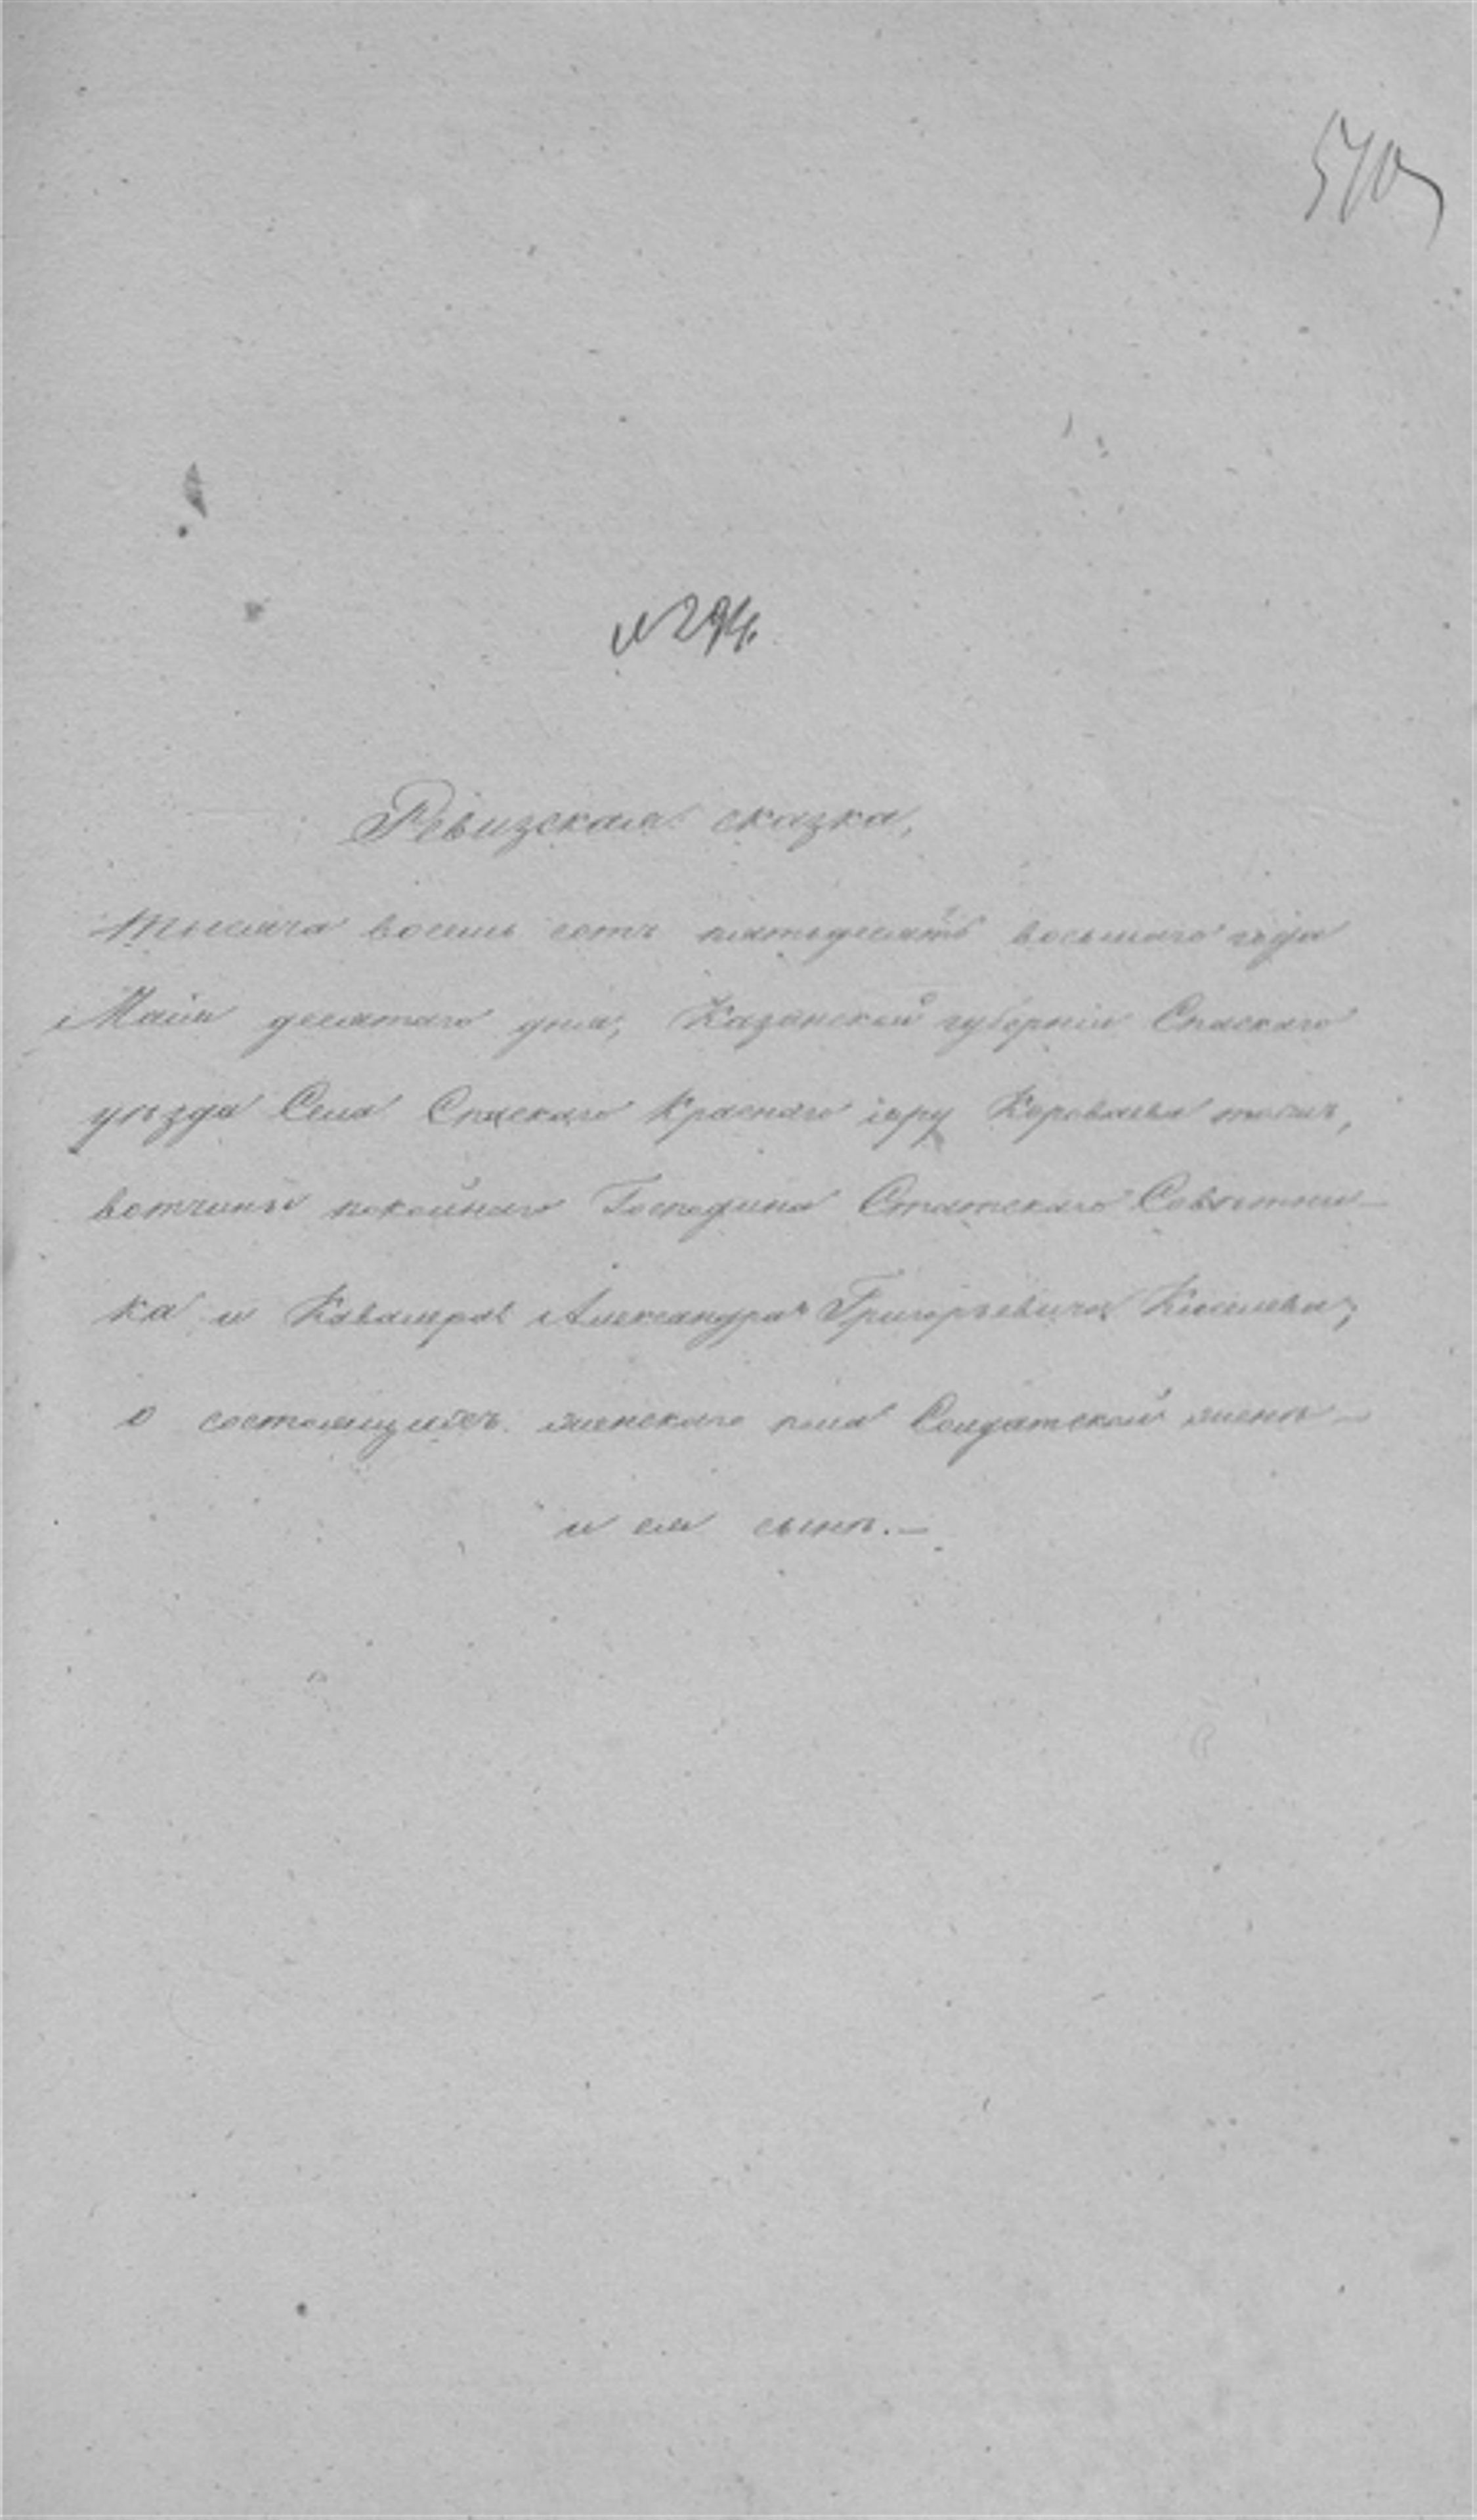 570
№ 294.
Ревизская сказка,
тысяча восемь сотъ пятьдесятъ восьмаго года
Маія десятаго дня, Казанской губерніи Спаскаго
уѣзда Села Спаскаго Краснаго яру Короваева тожъ,
вотчины покойнаго Господина Статскаго Совѣтни-
ка и Кавалера Александра Григорьевича Киселева;
о состоящихъ женскаго пола Солдатской женѣ
и ея сынѣ.—